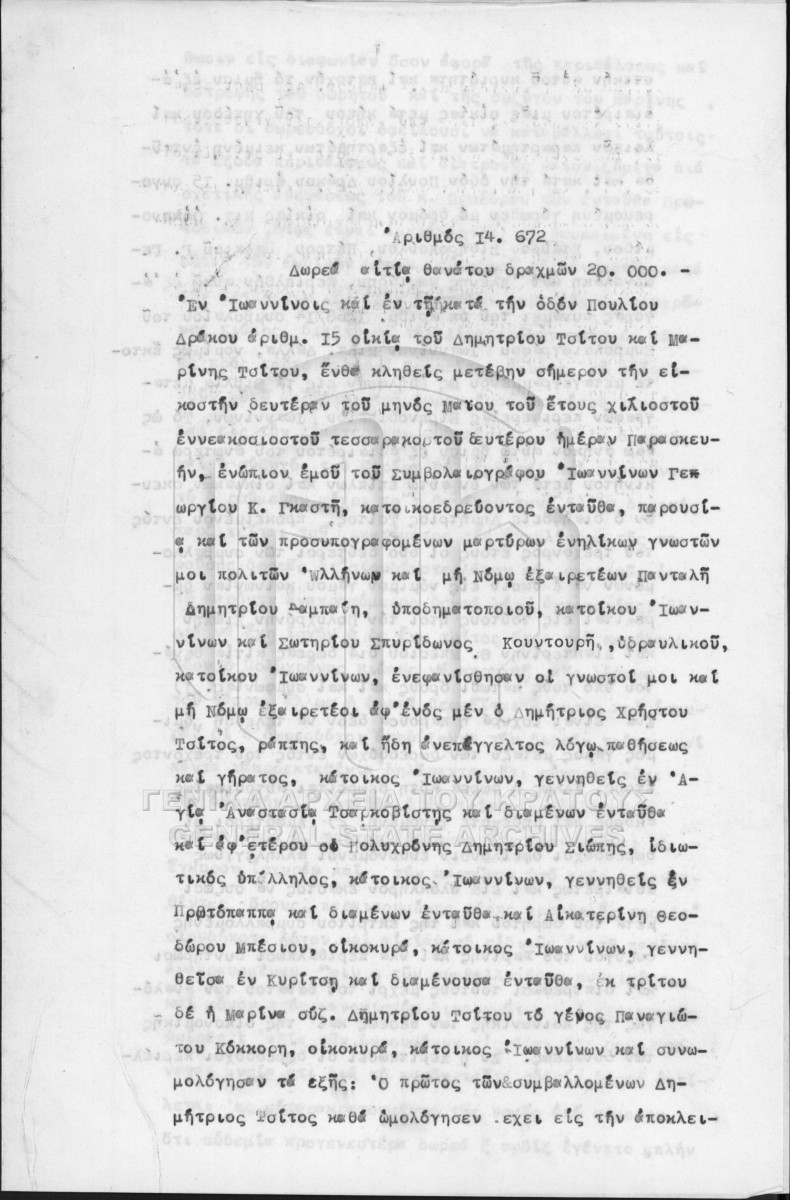 Ἀριθμός 14. 672
Δωρεά αἰτίᾳ θανάτου δραχμῶν 20. 000. -
Ἐν Ἰωαννίνοις καί ἐν τῇ κατά τήν ὁδόν Πουλίου
Δράκου ἀριθμ. 15 οἰκίᾳ τοῦ Δημητρίου Τσίτου καί Μα-
ρίνης Τσίτου, ἔνθα κληθείς μετέβην σήμερον τήν εἰ-
κοστήν δευτέραν τοῦ μηνός Μαΐου τοῦ ἔτους χιλιοστοῦ
ἐννεακοσιοστοῦ τεσσαρακοστοῦ δευτέρου ἡμέραν Παρασκευ-
ήν, ἐνώπιον ἐμοῦ τοῦ Συμβολαιργράφου Ἰωαννίνων Γε
ωργίου Κ. Γκαστῆ, κατοικοεδρεύοντος ἐνταῦθα, παρουσί-
ᾳ καί τῶν προσυπογραφομένων μαρτύρων ἐνηλίκων γνωστῶν
μοι πολιτῶν Ὠλλήνων καί μή Νόμῳ ἐξαιρετέων Πανταλῆ
Δημητρίου ὑποδηματοποιοῦ, κατοίκου Ἰωαν-
νίνων καί Σωτηρίου Σπυρίδωνος Κουντουρῆ, ὑδραυλικοῦ,
κατοίκου Ἰωαννίνων, ἐνεφανίσθησαν οἱ γνωστοί μοι καί
μή Νόμῳ ἐξαιρετέοι ἀφ'ἑνός μέν ὁ Δημήτριος Χρήστου
Τσίτος, ράπτης, καί ἤδη ἀνεπάγγελτος λόγῳ παθήσεως
καί γήρατος, κάτοικος Ἰωαννίνων, γεννηθείς ἐν Ἁ-
γίᾳ Ἀναστασίᾳ Τσαρκοβίστης καί διαμένων ἐνταῦθα
ΓΕΝΙΚΑ ΑΡΧΕΙΑ ΤΟΥ ΚΡΑΤΟΥΣ
GENERAL STATE ARCHIVES
καί ἀφ'ἑτέρου οἱ Πολυχρόνης Δημητρίου Σιώπης, ἰδιω-
τικός ὑπάλληλος, κάτοικος Ἰωαννίνων, γεννηθείς ἐν
Πρωτόπαππα καί διαμένων ἐνταῦθα καί Αἰκατερίνη Θεο-
δώρου Μπέσιου, οἰκοκυρά, κάτοικος Ἰωαννίνων, γεννη-
θεῖσα ἐν Κυρίτσῃ καί διαμένουσα ἐνταῦθα, ἐκ τρίτου
δέ ἡ Μαρίνα σύζ. Δημητρίου Τσίτου τό γένος Παναγιώ-
του Κόκκορη, οἰκοκυρά, κάτοικος Ἰωαννίνων καί συνω-
μολόγησαν τά ἑξῆς: Ὁ πρῶτος τῶν συμβαλλομένων Δη-
μήτριος Τσίτος καθά ὡμολόγησεν ἔχει εἰς τήν ἀποκλει-